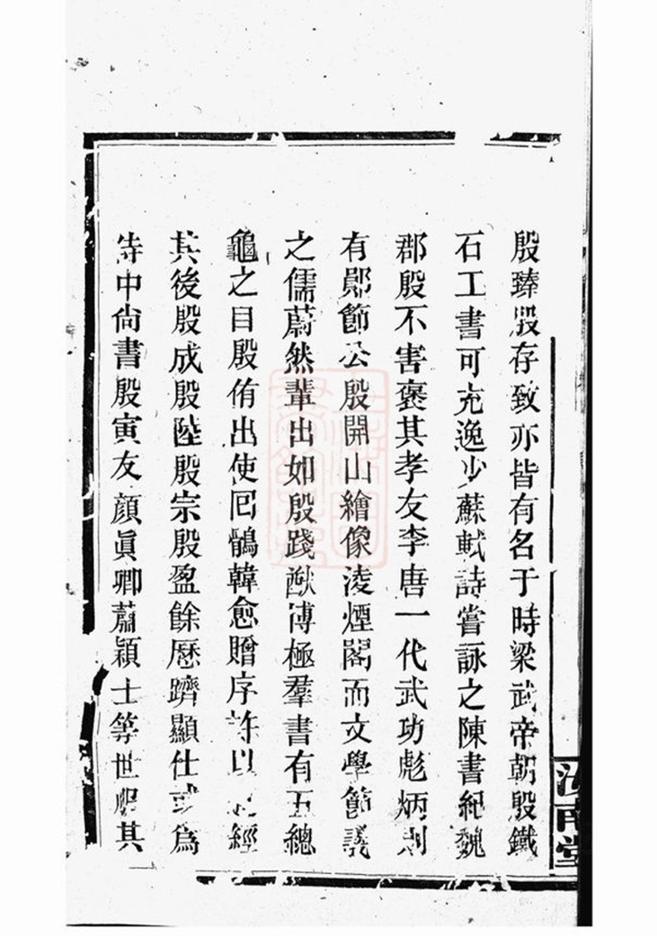 殷臻殷存致亦皆有名于時梁武帝朝殷鐵
石工書可充逸少蘇軾詩嘗詠之陳書紀魏
郡殷不害褒其孝友李唐一代武功彪炳則
有鄖節公殷開山繪像淩煙閣而文學節議
之儒蔚然輩出如殷踐猷博極羣書有五總
龜之目殷侑出使回鶻韓愈贈序許以經
其後殷成殷陸殷宗殷盈餘歷躋顯仕或為
侍中尚書殷寅友顏眞卿蕭穎士等世其
汝南堂